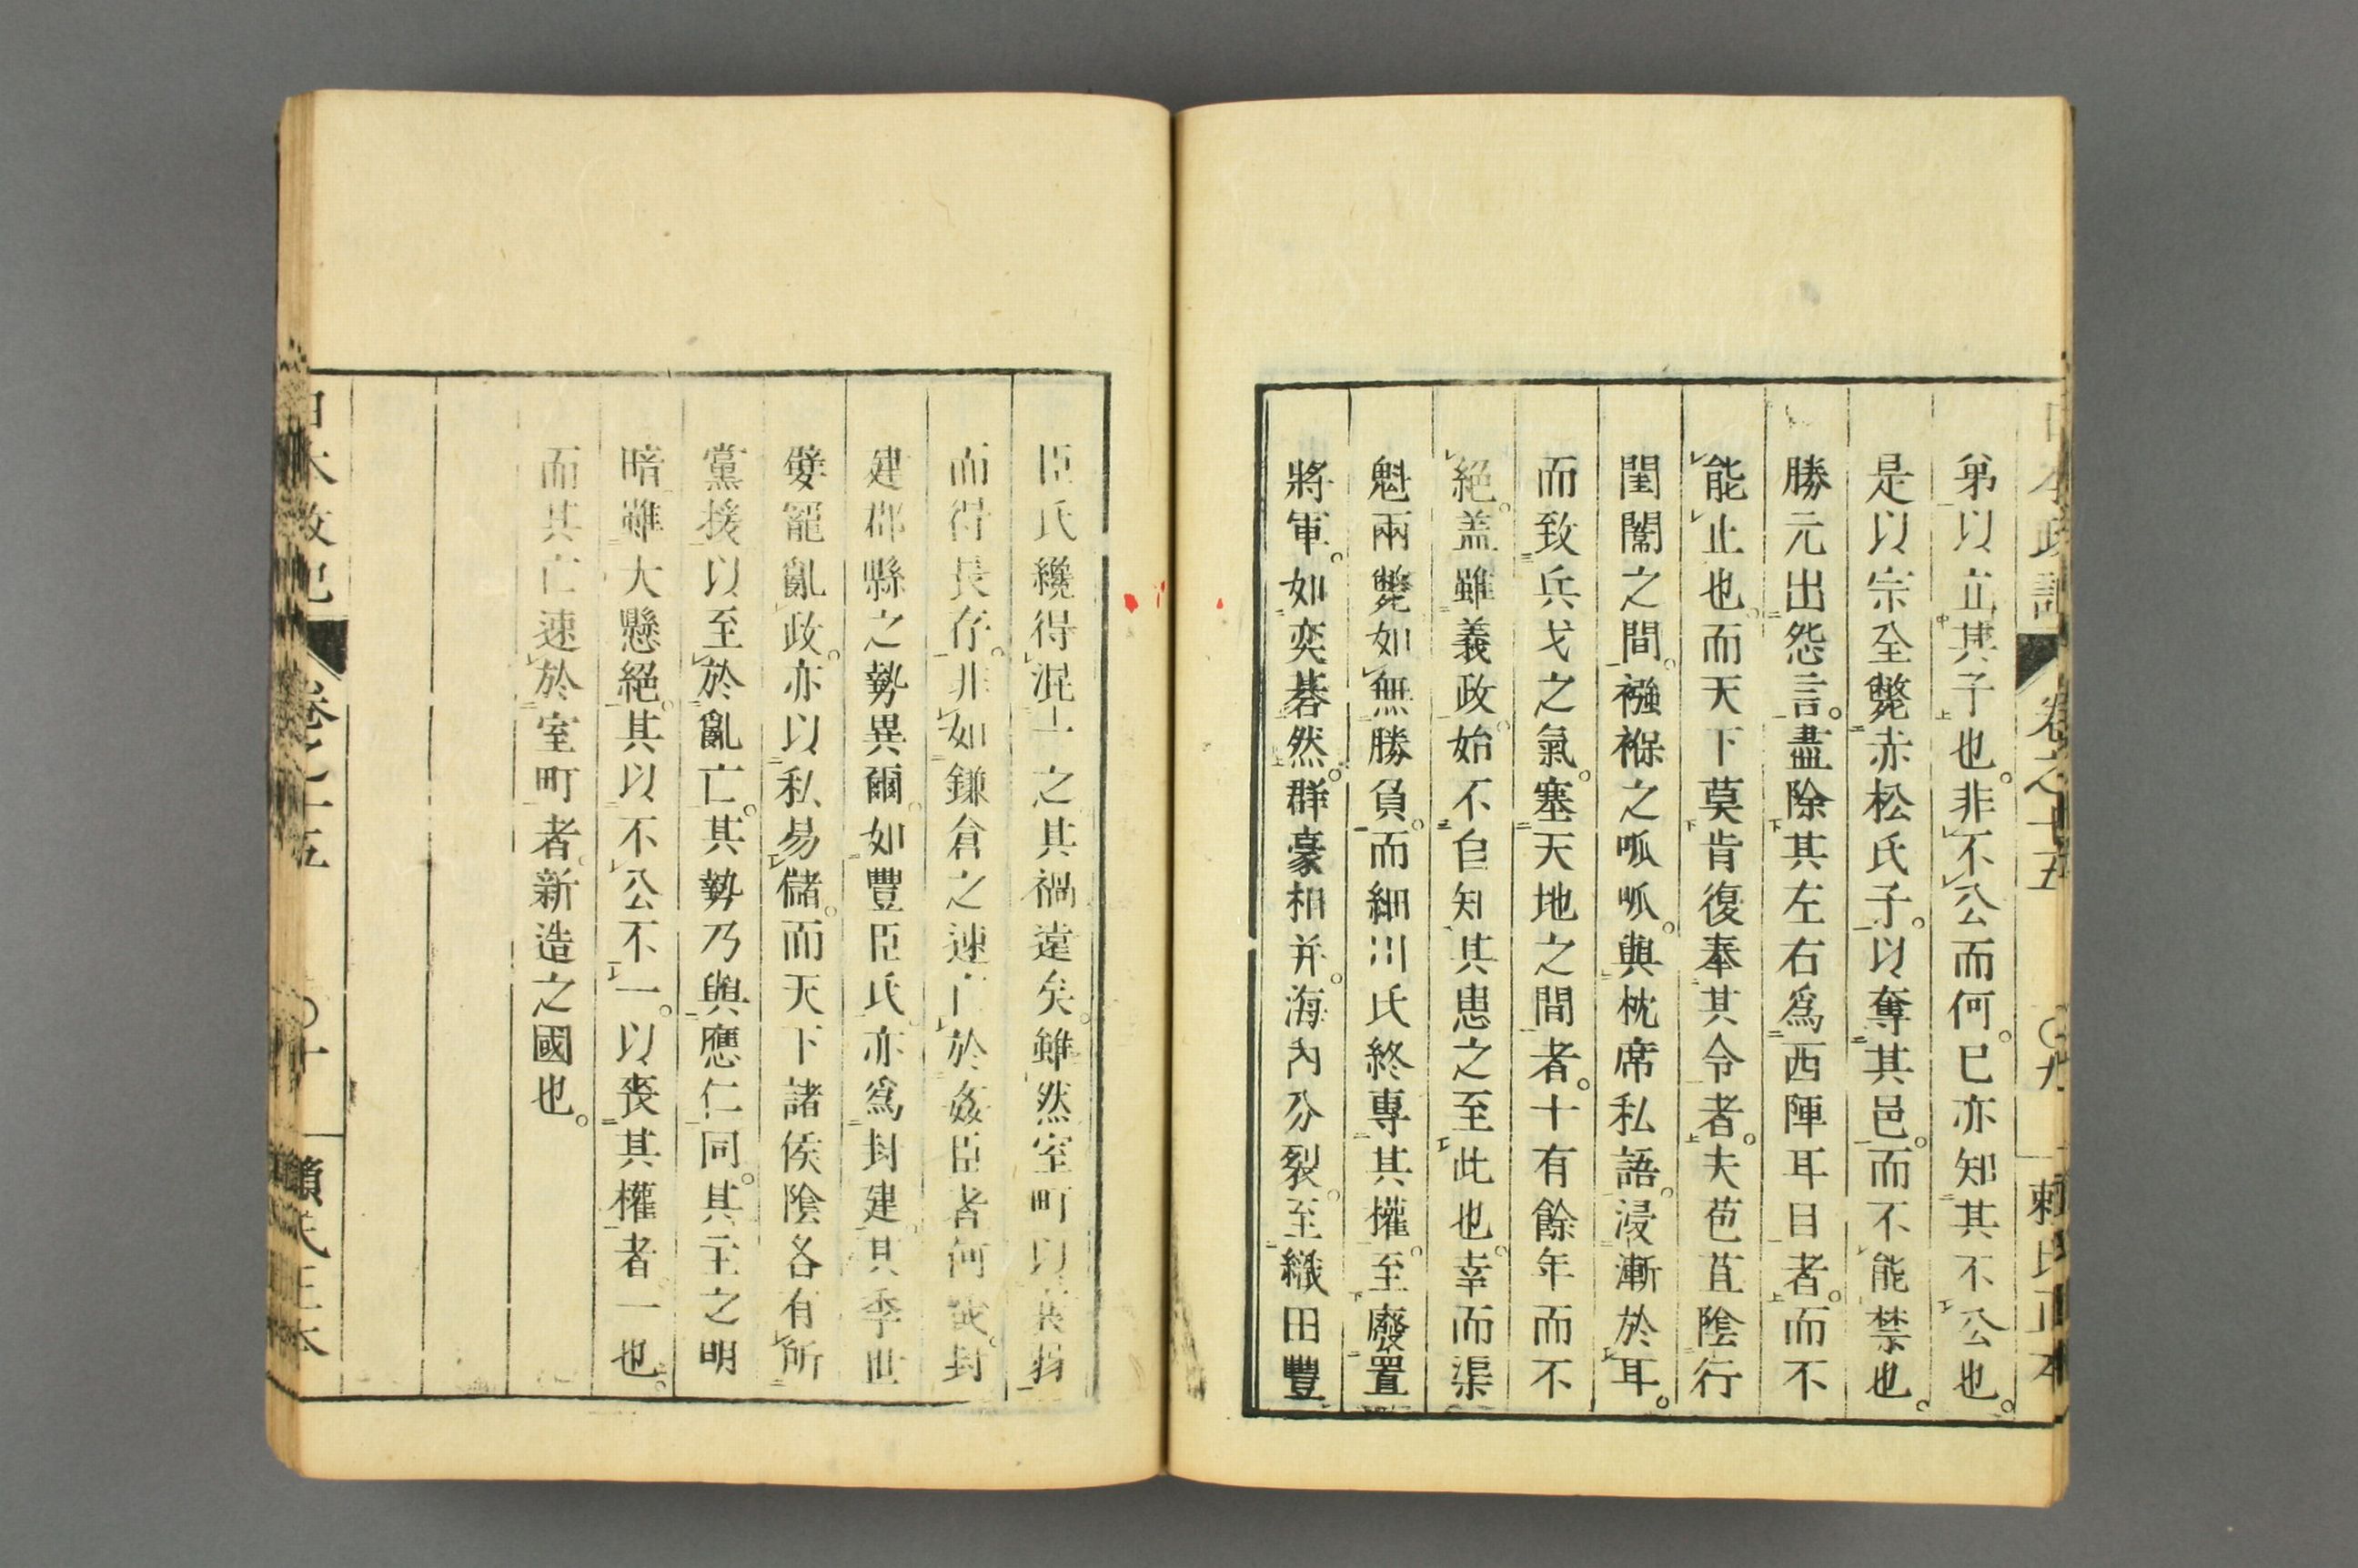 日本政記 卷之十五 〇九 賴氏正本
弟以立其子也。非不公而何。已亦知其不公也。
是以宗全斃赤松氏子。以奪其邑。而不能禁也。
勝元出怨言。盡除其左右爲西陣耳目者。而不
能止也。而天下莫肯復奉其令者。夫苞苴陰行
閨闥之間。襁褓之呱呱。與枕席私語。浸漸於耳。
而致兵戈之氣。塞天地之間者。十有餘年而不
絕。盖雖義政。始不自知其患之至此也。幸而渠
魁兩斃如無勝負。而細川氏終專其權。至廢置
將軍。如奕碁然。群豪相并。海內分裂。至織田豐
臣氏纔得混一之其禍遠矣。雖然室町以其弱
而得長存。非如鎌倉之速亡於姦臣者何哉。封
建郡縣之勢異爾。如豐臣氏亦爲封建。其季世
嬖寵亂政。亦以私易儲。而天下諸侯陰各有所
黨援以至於亂亡。其勢乃與應仁同。其主之明
暗雖大懸絕。其以不公不一。以喪其權者一也。
而其亡速於室町者。新造之國也。
日本政記 卷之十五 〇十 賴氏正本